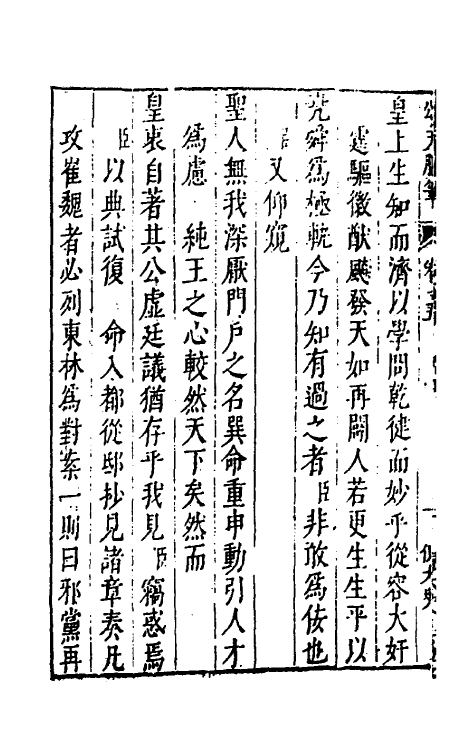 頌天臚筆
皇上生知而濟以學問乾健而妙乎從容大奸
霆驅徵猷飈發天如再闢人若更生生平以
堯舜爲極軌今乃知有過之者臣非敢爲佞也
臣又仰窺
聖人無我深厭門戶之名巽命重申動引人才
爲慮 純王之心較然天下矣然而
皇衷自著其公虛廷議猶存乎我見臣竊惑焉
臣以典試復 命入都從邸抄見諸章奏凡
攻崔魏者必列東林爲對案一則曰邪黨再